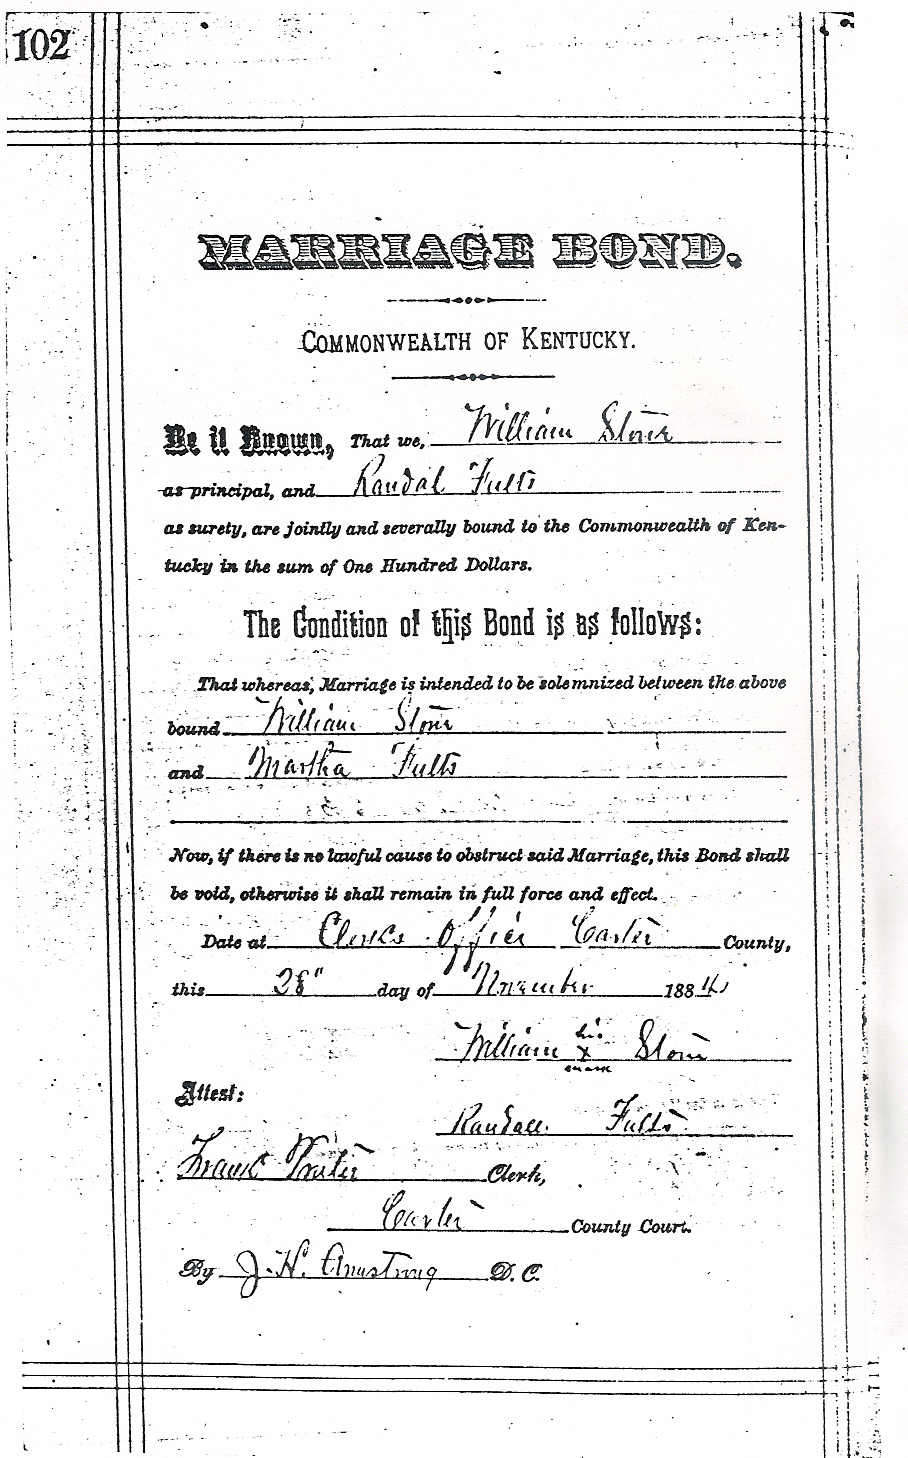 102
MARRIAGE BOND.
COMMONWEALTH OF KENTUCKY.
Be it Known, That we, William Stone
as principal, and Randal Fults
as surety, are jointly and severally bound to the Commonwealth of Ken-
tucky in the sum of One Hundred Dollars.
The Condition of this Bond is as follows:
That whereas, Marriage is intended to be solemnized between the above
bound William Stone
and Martha Fults
Now, if there is no lawful cause to obstruct said Marriage, this Bond shall
be void, otherwise it shall remain in full force and effect.
Date at Clerks Office Carter County,
this 28" day of November 1884
William his x mark Stone
Attest:
Randall Fults
Frank Prater Clerk,
Carter County Court.
By J. H. Armstrong D. C.